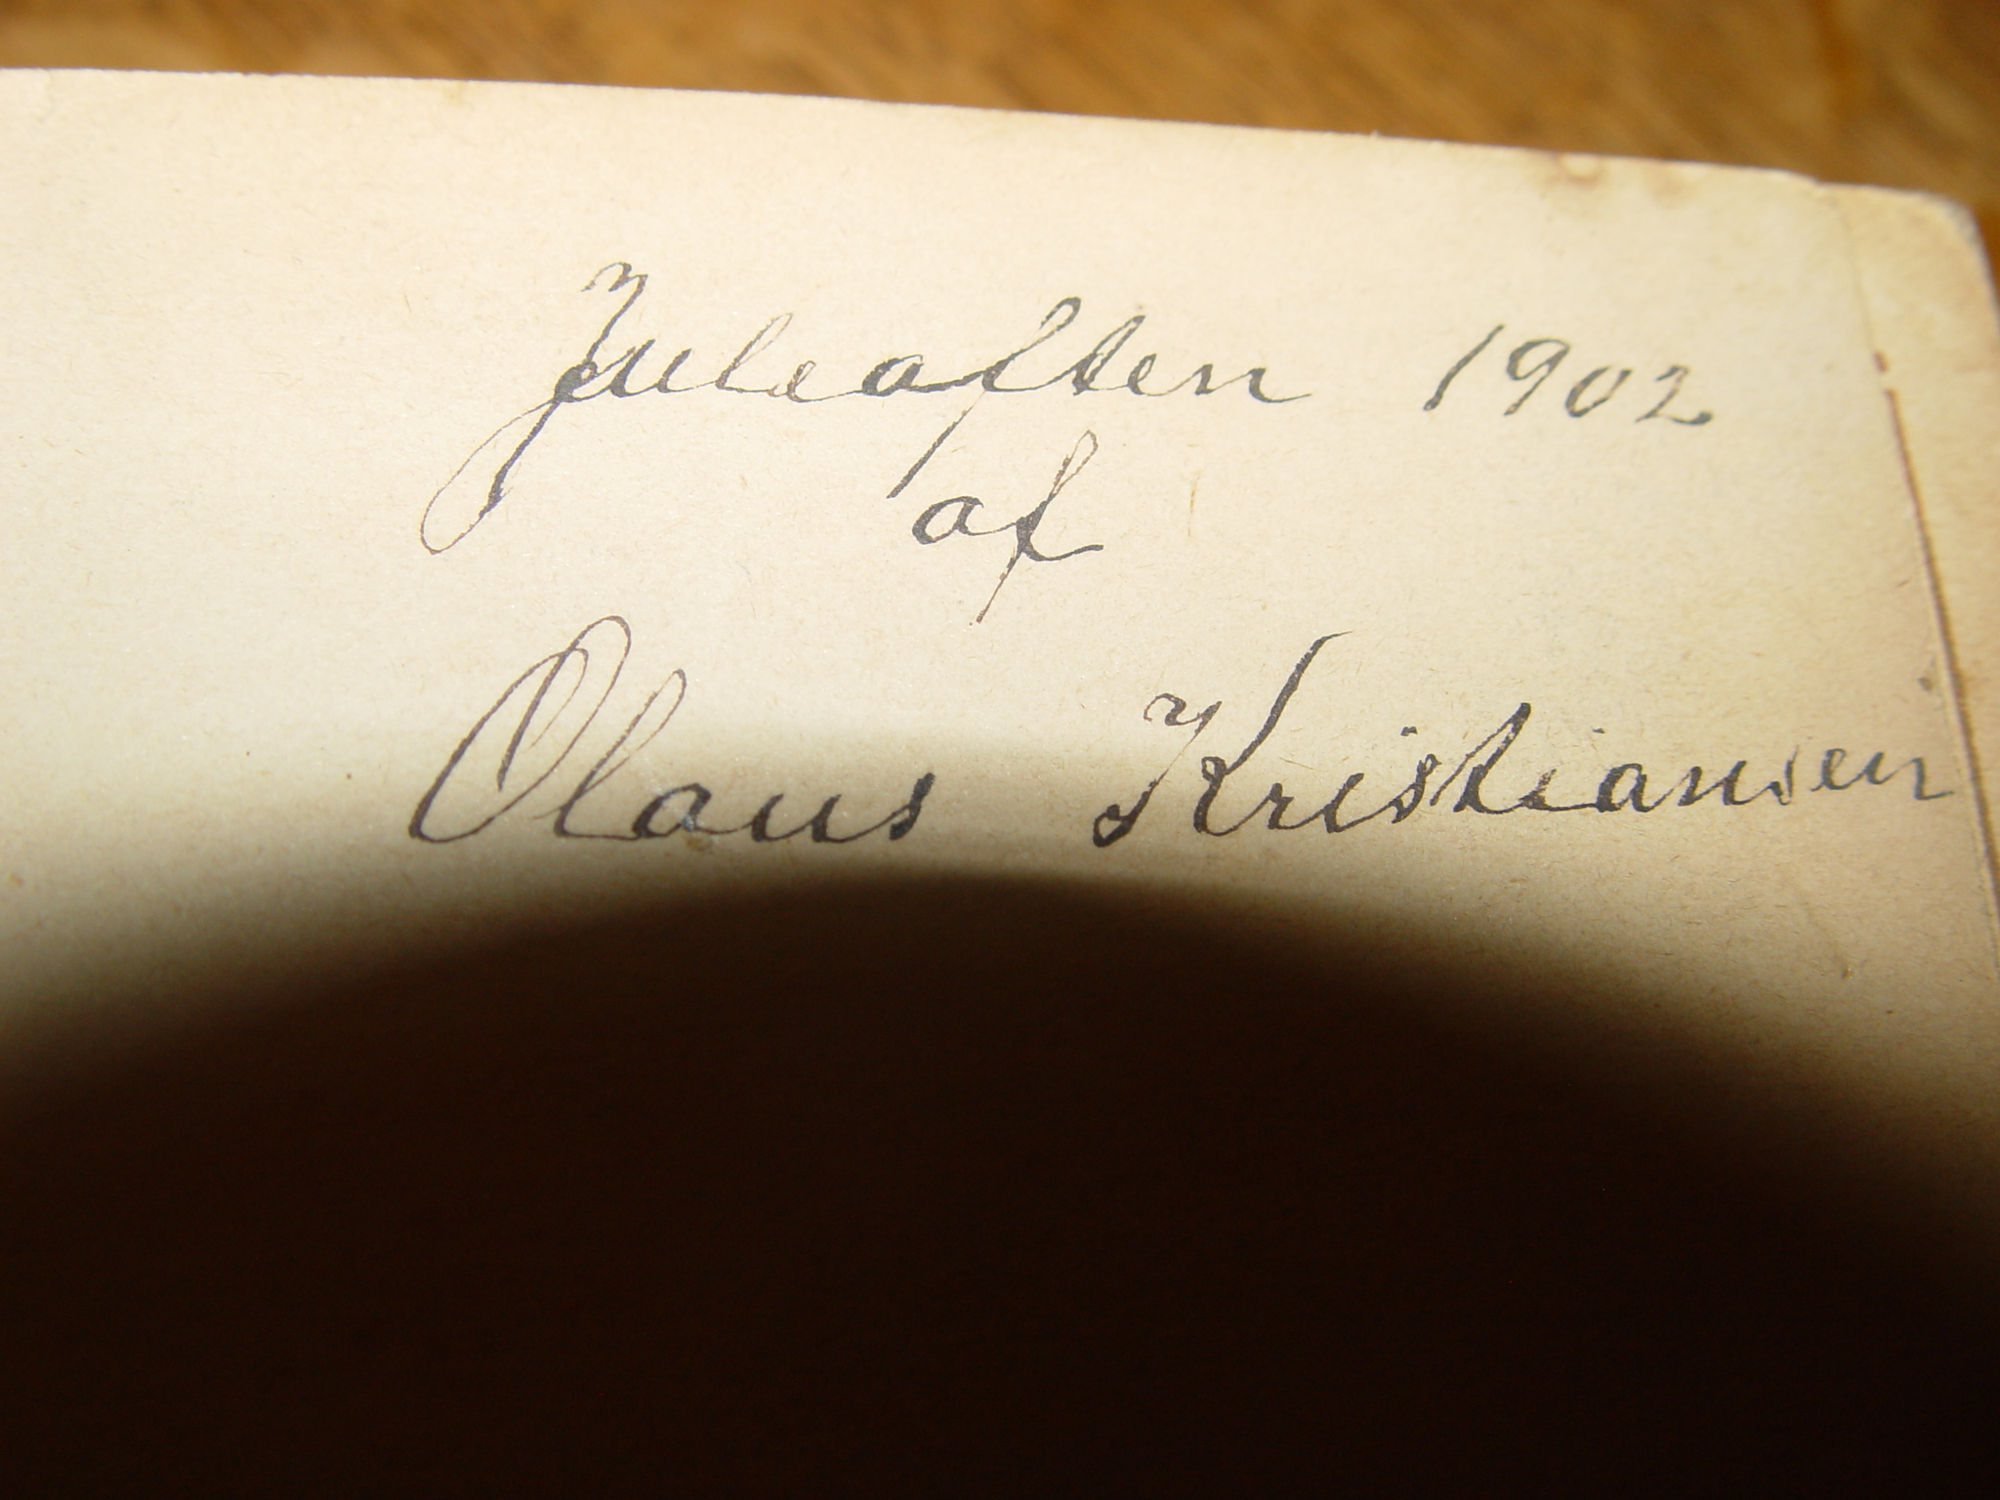 Juleaften 1902
af
Olaus Kristiansen